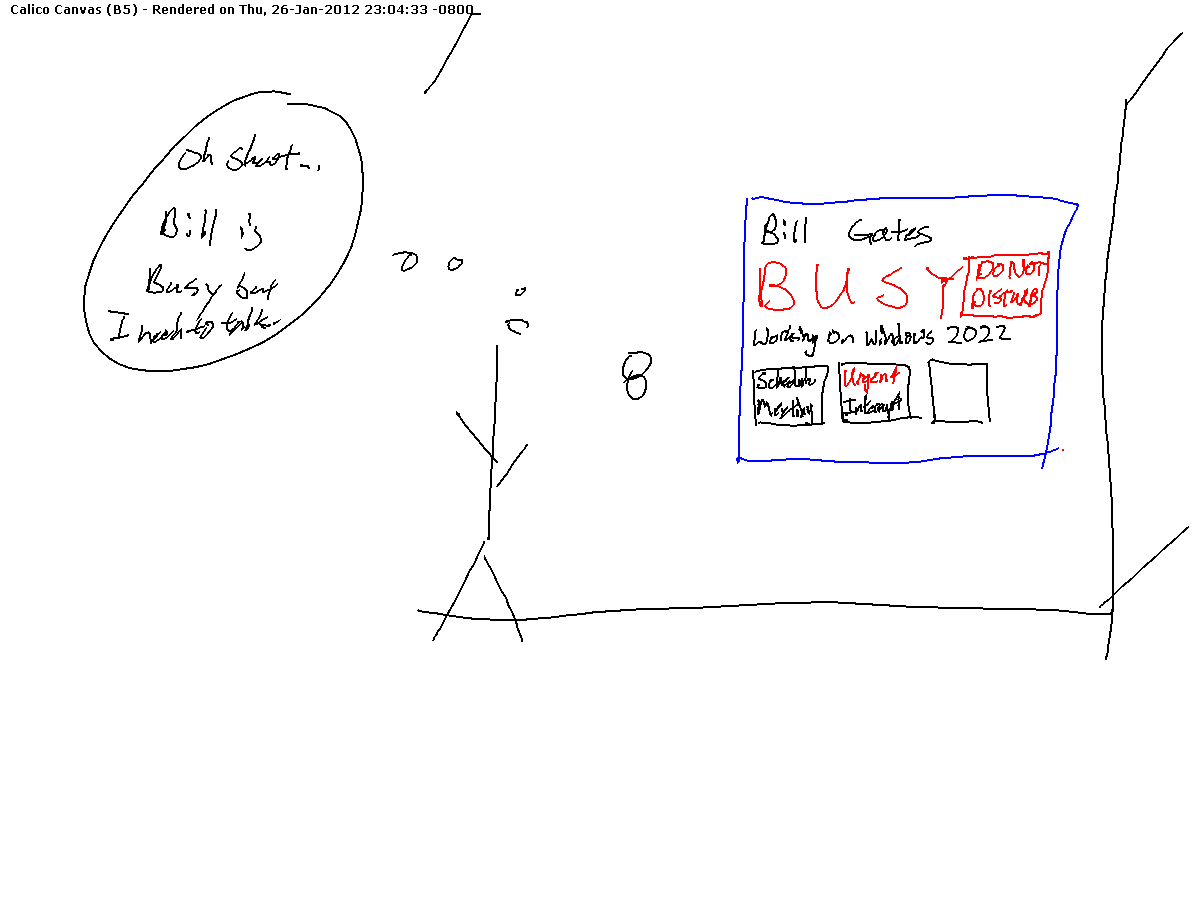 Calico Canvas (B5) - Rendered on Thu, 26-Jan-2012 23:04:33 -0800
Oh shoot...
Bill is
Busy but
I need to talk.
Bill Gates
BUSY
DO NOT
DISTURB
Working On Windows 2022
Schedule
Meeting
Urgent
Interrupt